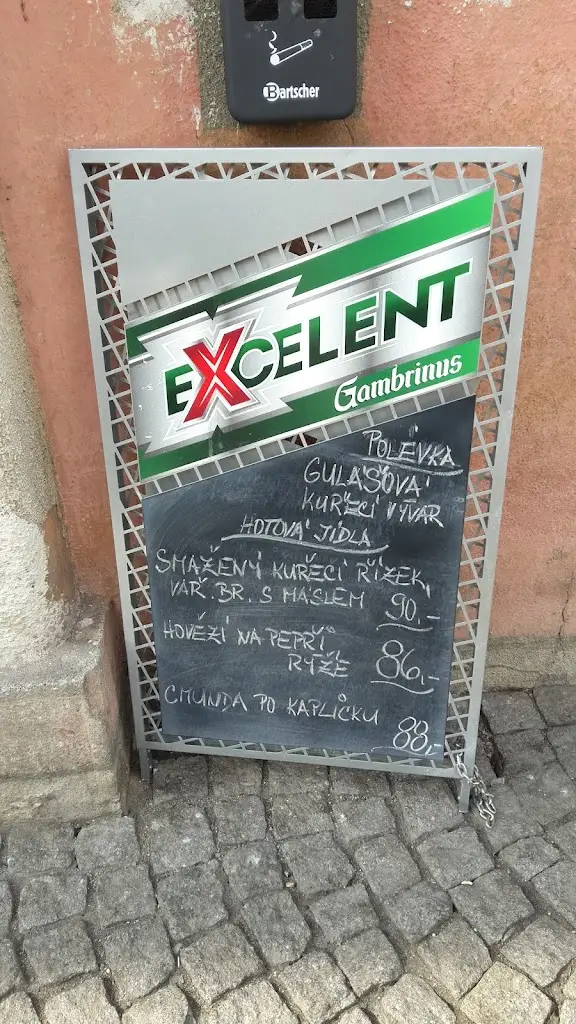 Bartscher
EXCELENT
Gambrinus
POLÉVKA
GULÁŠOVÁ
KUŘECÍ VÝVAR
HOTOVÁ JÍDLA
SMAŽENÝ KUŘECÍ ŘÍZEK,
VAŘ. BR. S MÁSLEM 90,-
HOVĚZÍ NA PEPŘI
RÝŽE 86,-
CMUNDA PO KAPLICKU 88,-